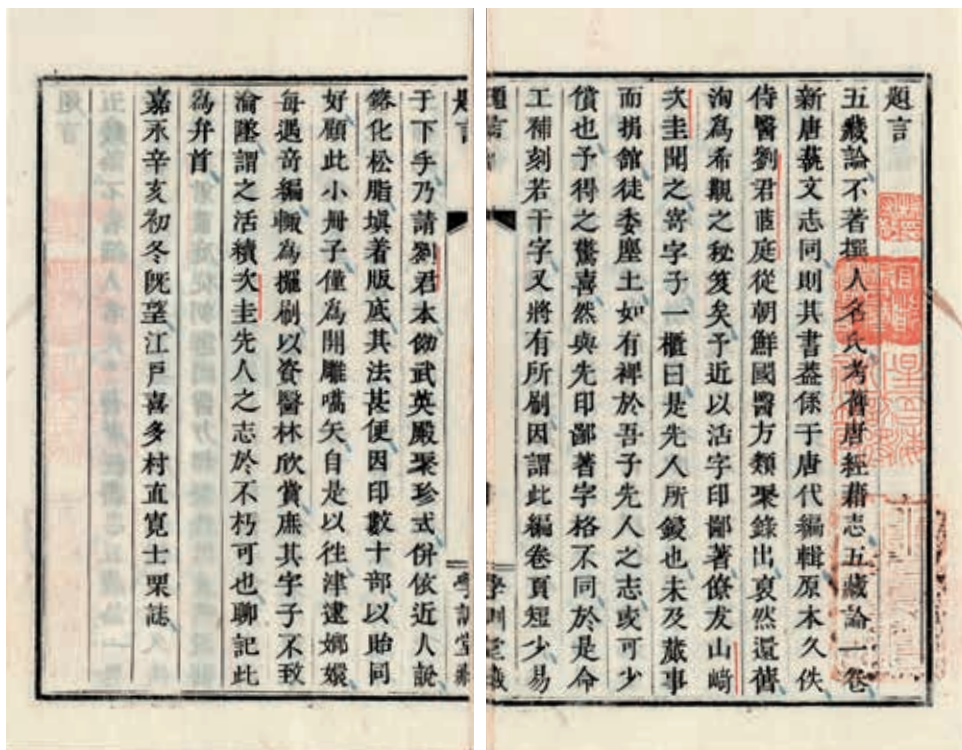 題言
五藏論不著撰人名氏考舊唐經籍志五藏論一卷
新唐蓺文志同則其書葢係于唐代編輯原本久佚
侍醫劉君茝庭從朝鮮國醫方類聚錄出裒然還舊
洵爲希覯之秘笈矣予近以活字印鄙著僚友山﨑
次圭聞之寄字子一櫃曰是先人所鋟也未及蕆事
而捐館徒委塵土如有裨於吾子先人之志或可少
償也予得之驚喜然與先印鄙著字格不同於是命
工補刻若干字又將有所刷因謂此編卷頁短少易
于下手乃請劉君本倣武英殿聚珍式併依近人說
鎔化松脂塡着版底其法甚便因印數十部以貽同
好顧此小冊子僅爲開雕嚆矢自是以徃津逮嫏嬛
每遇竒編輙爲擺刷以資醫林欣賞廡其字子不致
淪墜謂之活續次圭先人之志於不朽可也聊記此
爲弁首
嘉永辛亥初冬旣望江戶喜多村直寬士栗誌